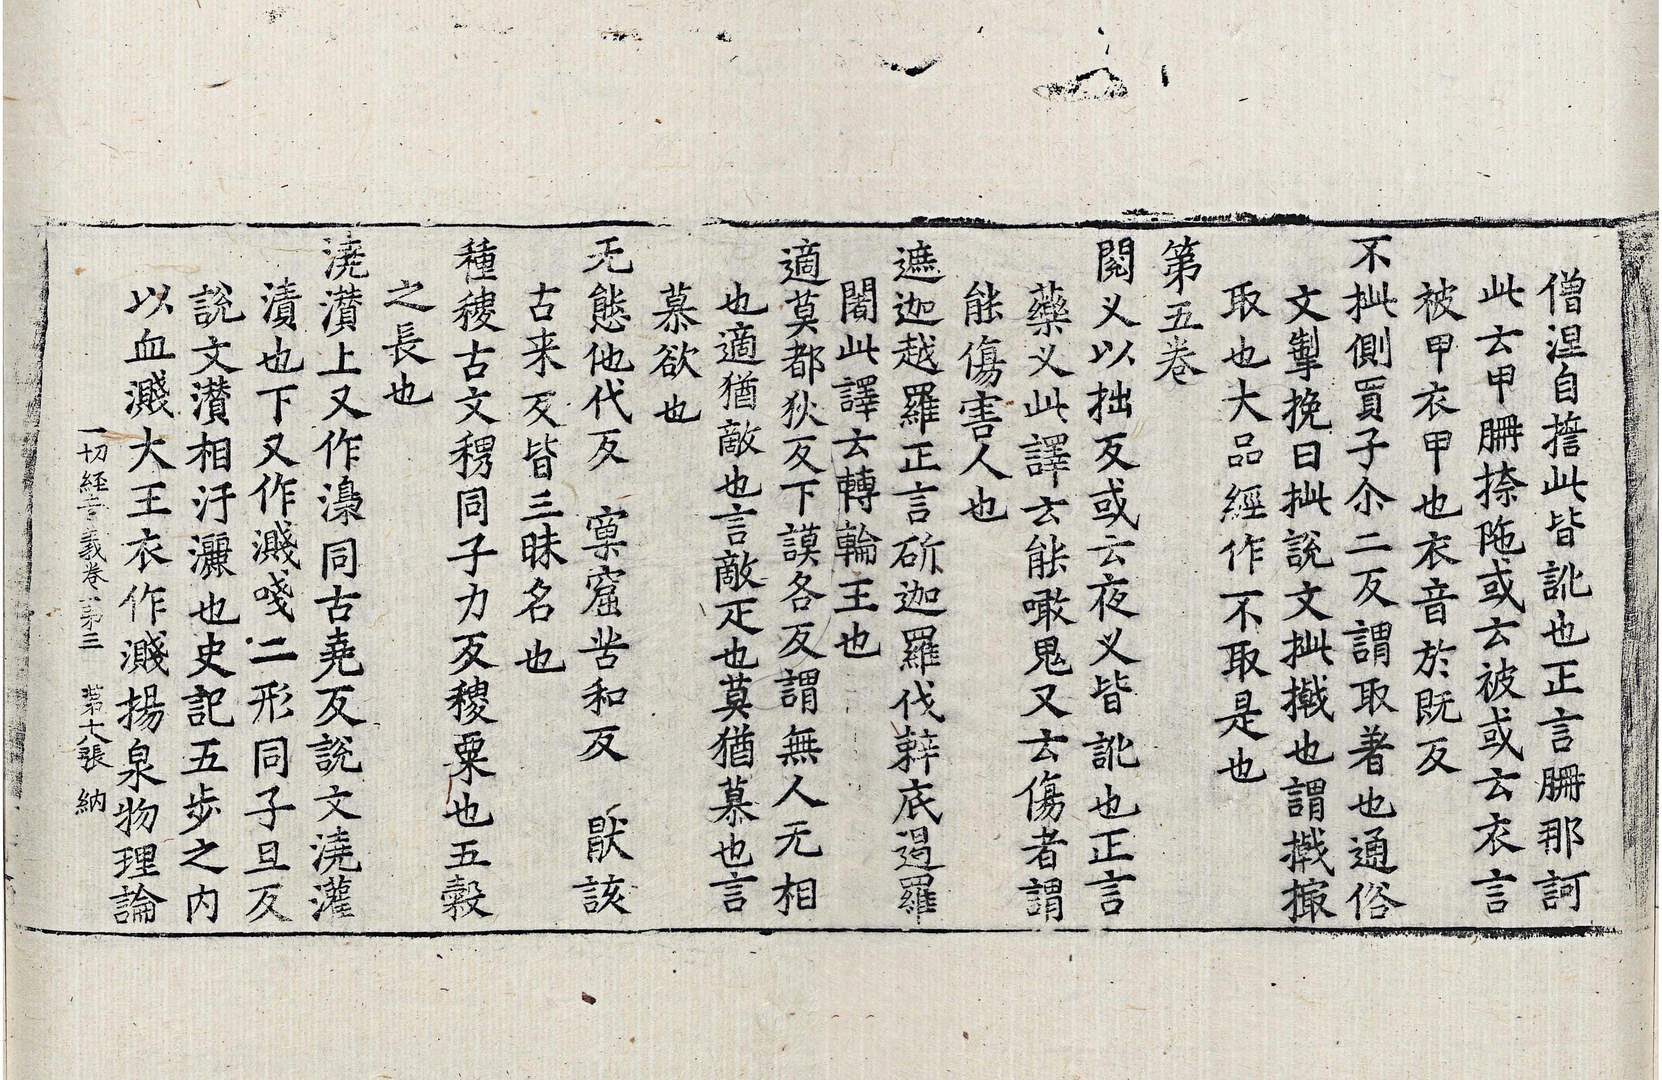 僧涅自誓此皆訛也正言𦙱那訶
此云甲𦙱捺陁或云被或云衣言
被甲衣甲也衣音於既反
不㧗側買子尒二反謂取著也通俗
文掣挽曰㧗說文㧗摵也謂摵撮
取也大品經作不取是也
第五卷
閱义以拙反或云夜义皆訛也正言
藥义此譯云能噉鬼又云傷者謂
能傷害人也
遮迦越羅正言斫迦羅伐辢底遏羅
闍此譯云轉輪王也
適莫都狄反下謨各反謂無人无相
也適猶敵也言敵疋也莫猶慕也言
慕欲也
无態他代反 窠窟苦和反 猒該
古来反皆三昧名也
種稷古文稷同子力反稷粟也五穀
之長也
澆灒上又作澆同古堯反說文澆灌
漬也下又作濺㳪二形同子旦反
說文灒相汙灑也史記五步之内
以血濺大王衣作濺揚泉物理論
一切經音義卷 第三 第十八張 納